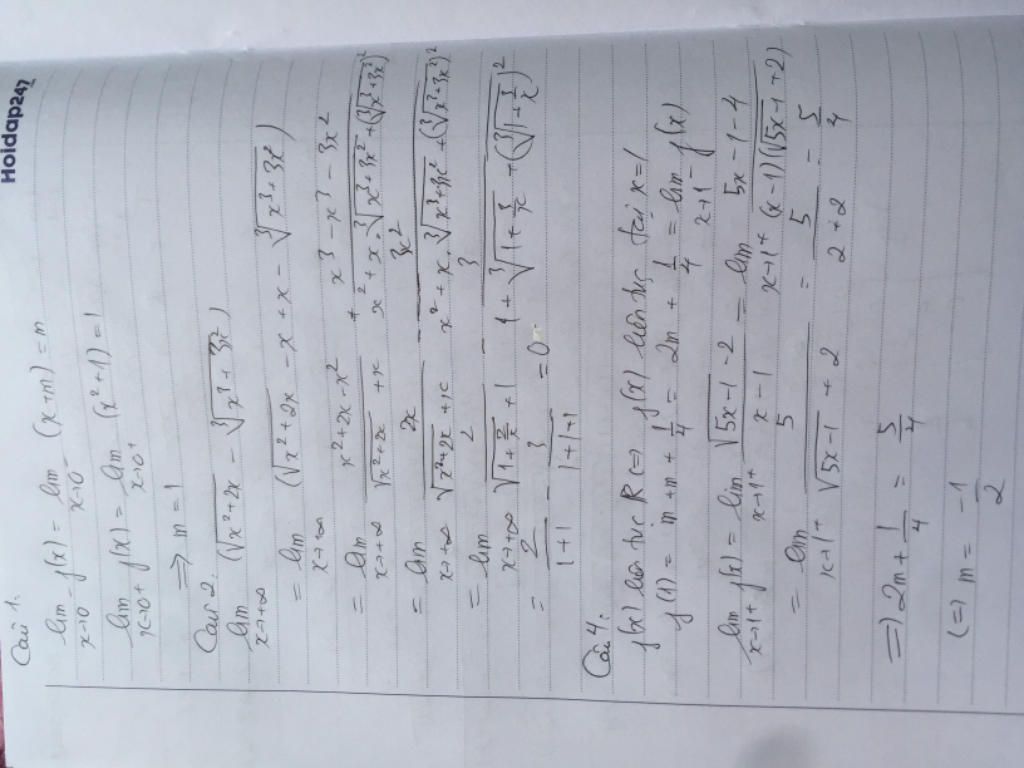 Hoidap247
Câu 1.
lim x→0⁻ f(x) = lim x→0⁻ (x+m) = m
lim x→0⁺ f(x) = lim x→0⁺ (x²+1) = 1
=> m = 1
Câu 2.
lim x→+∞ (√(x²+2x) - ∛(x³+3x²))
= lim x→+∞ (√(x²+2x) - x + x - ∛(x³+3x²))
= lim x→+∞ (x²+2x-x²)/(√(x²+2x) + x) + (x³-x³-3x²)/(x² + x∛(x³+3x²) + (∛(x³+3x²))²)
= lim x→+∞ 2x/(√(x²+2x) + x) - 3x²/(x² + x.∛(x³+3x²) + (∛(x³+3x²))²)
= lim x→+∞ 2/(√(1+2/x) + 1) - 3/(1 + ∛(1+3/x) + (∛(1+3/x))²)
= 2/(1+1) - 3/(1+1+1) = 0
Câu 4:
f(x) liên tục R <=> f(x) liên tục tại x=1
f(1) = m + m + 1/4 = 2m + 1/4 = lim x→1⁻ f(x)
lim x→1⁺ f(x) = lim x→1⁺ (√(5x-1) - 2)/(x-1) = lim x→1⁺ (5x-1-4)/((x-1)(√(5x-1) + 2))
= lim x→1⁺ 5/(√(5x-1) + 2) = 5/(2+2) = 5/4
=> 2m + 1/4 = 5/4
<=> m = -1/2